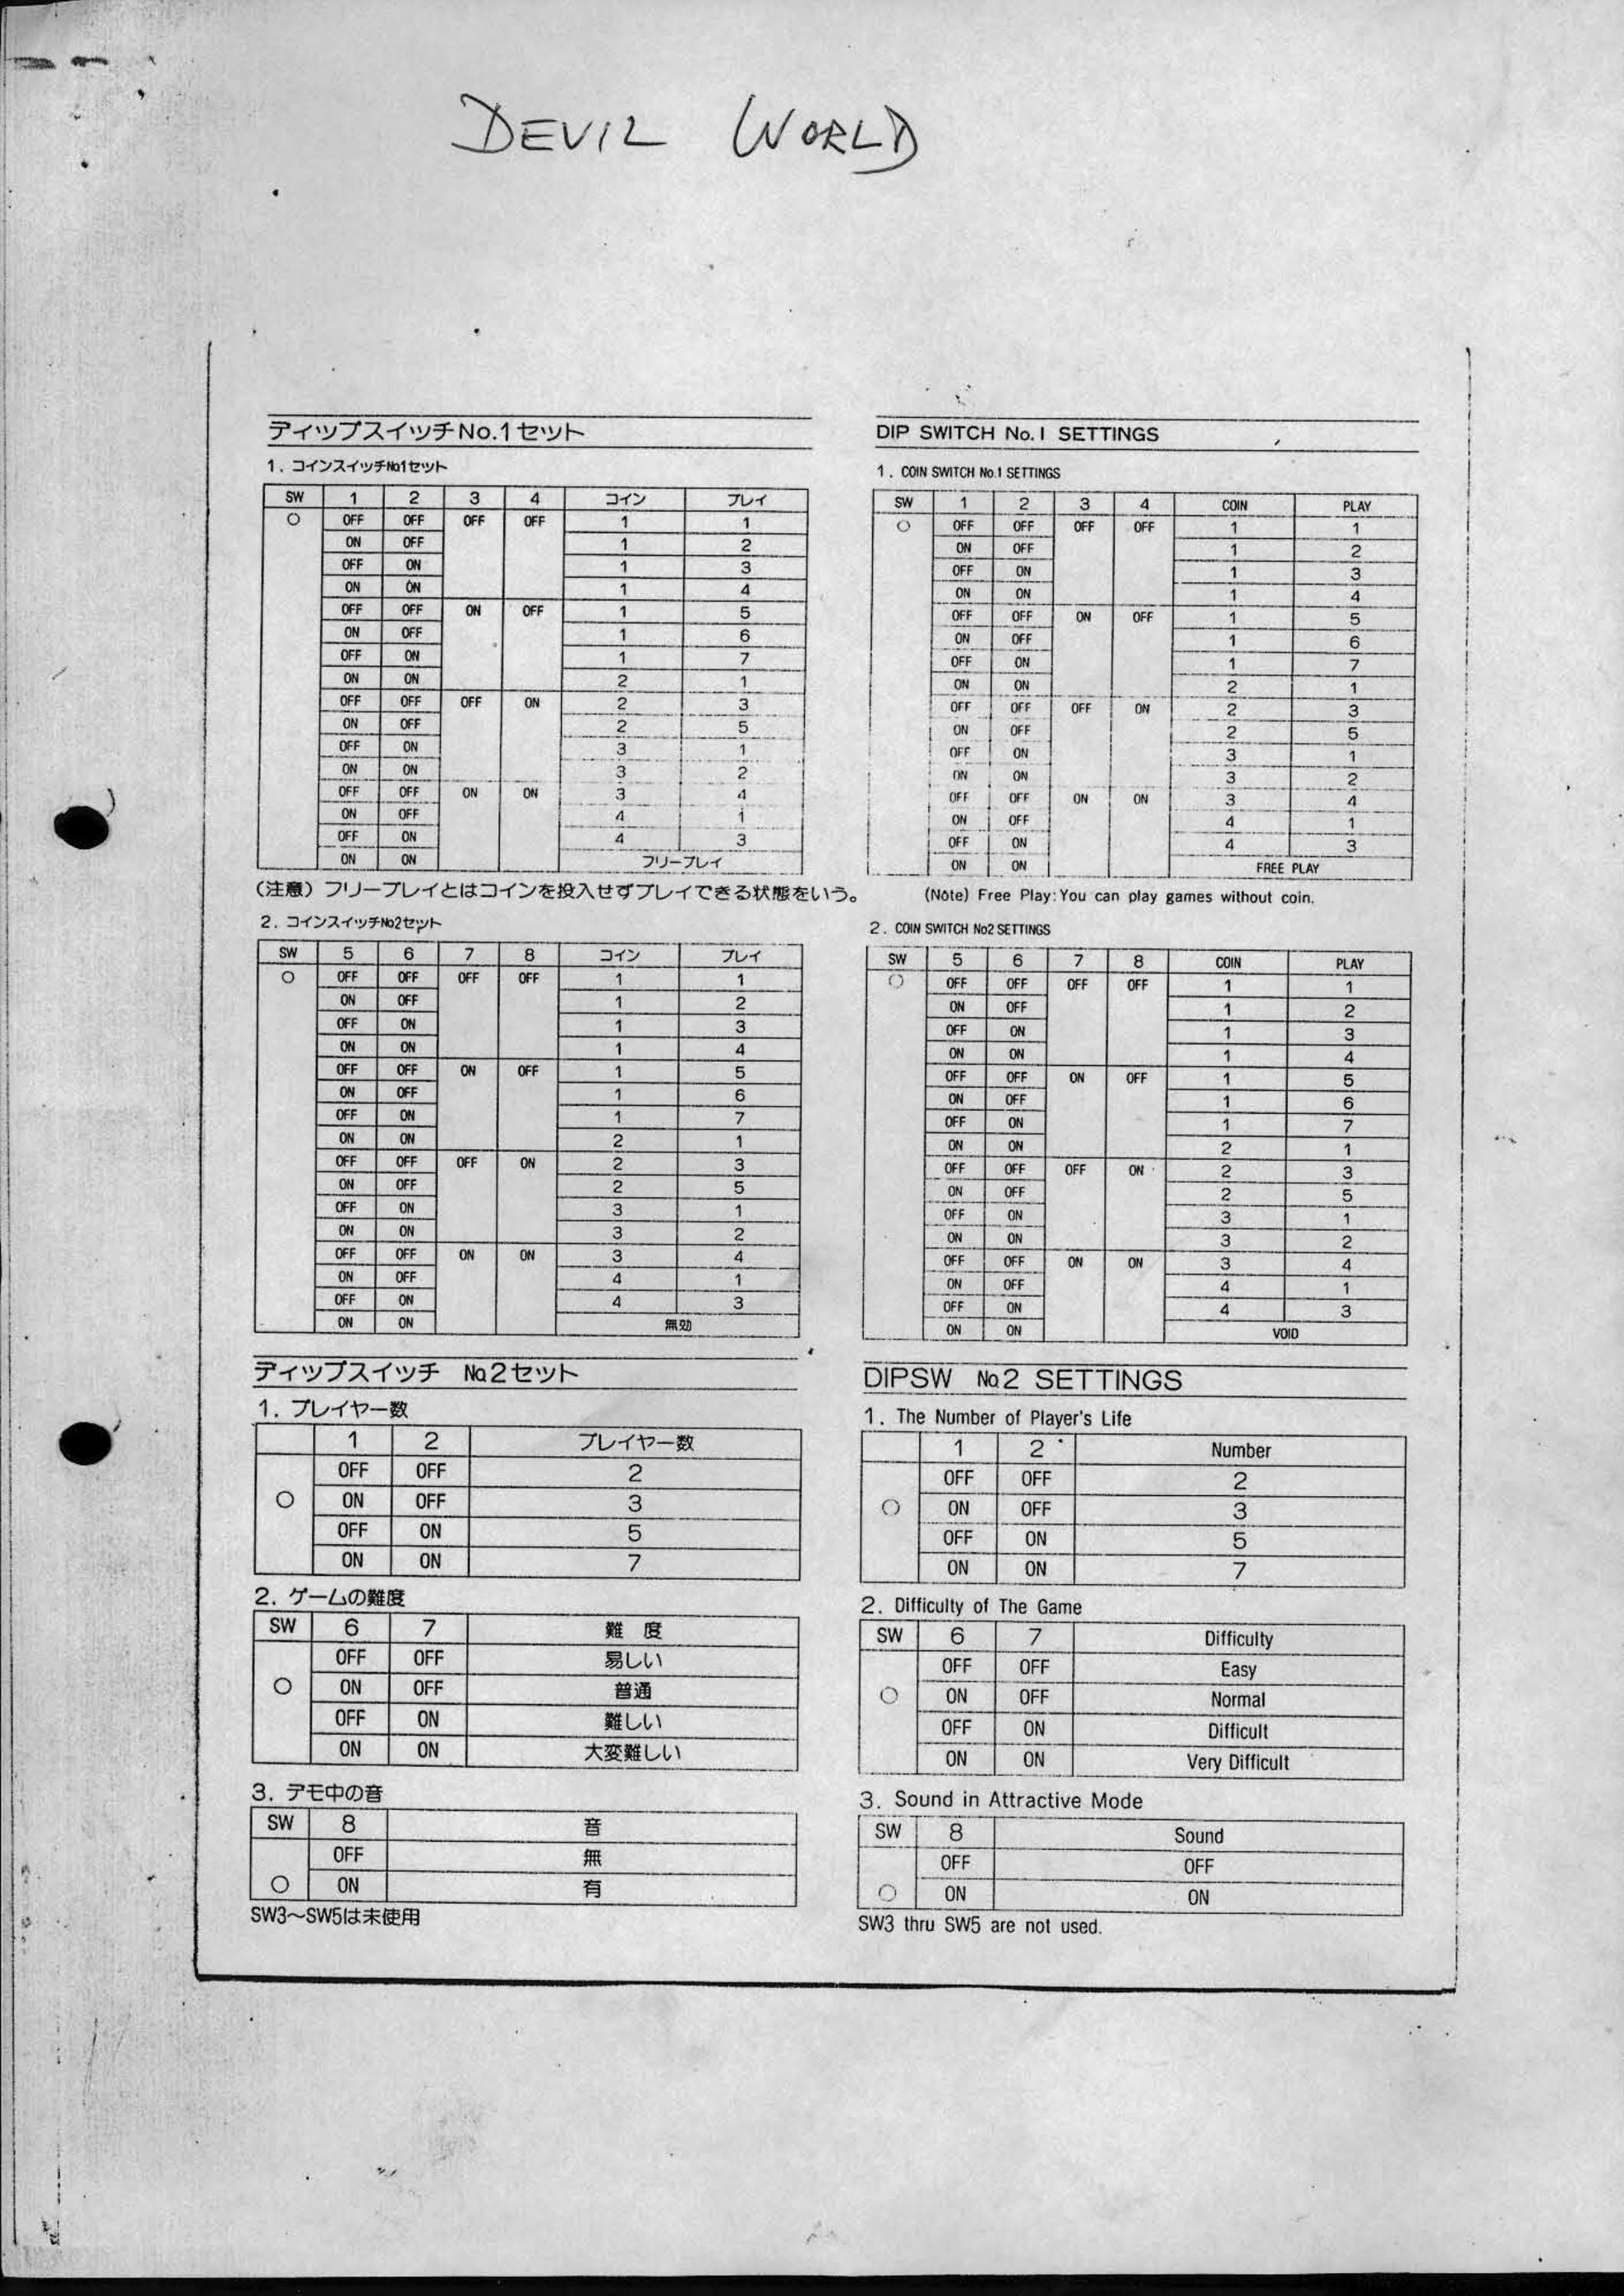 DEVIL WORLD
ディップスイッチNo.1セット
1. コインスイッチNo1セット
SW 1 2 3 4 コイン プレイ
○ OFF OFF OFF OFF 1 1
ON OFF 1 2
OFF ON 1 3
ON ON 1 4
OFF OFF ON OFF 1 5
ON OFF 1 6
OFF ON 1 7
ON ON 2 1
OFF OFF OFF ON 2 3
ON OFF 2 5
OFF ON 3 1
ON ON 3 2
OFF OFF ON ON 3 4
ON OFF 4 1
OFF ON 4 3
ON ON フリープレイ
(注意) フリープレイとはコインを投入せずプレイできる状態をいう。
2. コインスイッチNo2セット
SW 5 6 7 8 コイン プレイ
○ OFF OFF OFF OFF 1 1
ON OFF 1 2
OFF ON 1 3
ON ON 1 4
OFF OFF ON OFF 1 5
ON OFF 1 6
OFF ON 1 7
ON ON 2 1
OFF OFF OFF ON 2 3
ON OFF 2 5
OFF ON 3 1
ON ON 3 2
OFF OFF ON ON 3 4
ON OFF 4 1
OFF ON 4 3
ON ON 無効
ディップスイッチ No.2セット
1. プレイヤー数
1 2 プレイヤー数
OFF OFF 2
○ ON OFF 3
OFF ON 5
ON ON 7
2. ゲームの難度
SW 6 7 難 度
OFF OFF 易しい
○ ON OFF 普通
OFF ON 難しい
ON ON 大変難しい
3. デモ中の音
SW 8 音
OFF 無
○ ON 有
SW3〜SW5は未使用
DIP SWITCH No.1 SETTINGS
1. COIN SWITCH No.1 SETTINGS
SW 1 2 3 4 COIN PLAY
○ OFF OFF OFF OFF 1 1
ON OFF 1 2
OFF ON 1 3
ON ON 1 4
OFF OFF ON OFF 1 5
ON OFF 1 6
OFF ON 1 7
ON ON 2 1
OFF OFF OFF ON 2 3
ON OFF 2 5
OFF ON 3 1
ON ON 3 2
OFF OFF ON ON 3 4
ON OFF 4 1
OFF ON 4 3
ON ON FREE PLAY
(Note) Free Play: You can play games without coin.
2. COIN SWITCH No2 SETTINGS
SW 5 6 7 8 COIN PLAY
○ OFF OFF OFF OFF 1 1
ON OFF 1 2
OFF ON 1 3
ON ON 1 4
OFF OFF ON OFF 1 5
ON OFF 1 6
OFF ON 1 7
ON ON 2 1
OFF OFF OFF ON 2 3
ON OFF 2 5
OFF ON 3 1
ON ON 3 2
OFF OFF ON ON 3 4
ON OFF 4 1
OFF ON 4 3
ON ON VOID
DIPSW No.2 SETTINGS
1. The Number of Player's Life
1 2 Number
OFF OFF 2
○ ON OFF 3
OFF ON 5
ON ON 7
2. Difficulty of The Game
SW 6 7 Difficulty
OFF OFF Easy
○ ON OFF Normal
OFF ON Difficult
ON ON Very Difficult
3. Sound in Attractive Mode
SW 8 Sound
OFF OFF
○ ON ON
SW3 thru SW5 are not used.